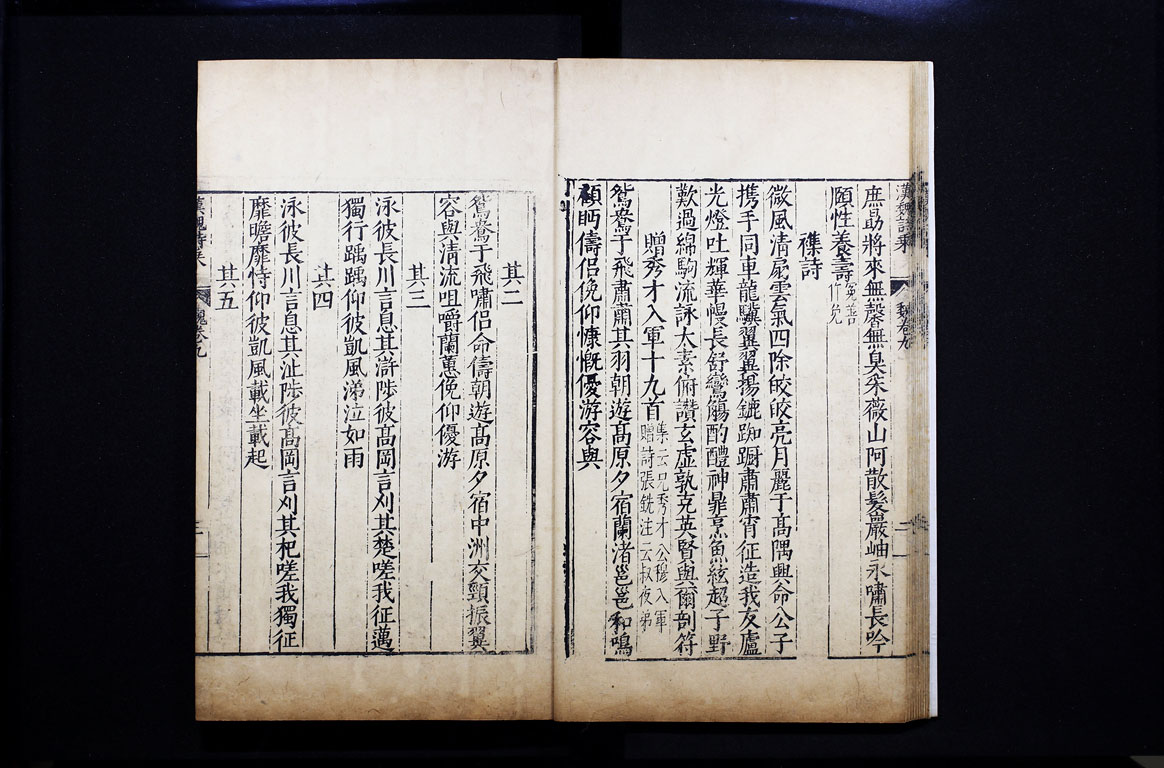 漢魏詩乘
魏卷九
二
庶勗將來無馨無臭采薇山阿散髮巖岫永嘯長吟
頤性養壽
雜詩
微風清扇雲氣四除皎皎亮月麗于高隅興命公子
携手同車龍驥翼翼揚鑣踟蹰肅肅宵征造我友廬
光燈吐輝華幔長舒鸞觴酌醴神鼎烹魚絃超子野
歎過綿駒流詠太素俯讚玄虛孰克英賢與爾剖符
贈秀才入軍十九首
集云兄秀才公穆入軍
贈詩張銑注云叔夜弟
鴛鴦于飛肅肅其羽朝遊高原夕宿蘭渚邕邕和鳴
顧眄儔侶俛仰慷慨優游容與
其二
鴛鴦于飛嘯侶命儔朝遊高原夕宿中洲交頸振翼
容與清流咀嚼蘭蕙俛仰優游
其三
泳彼長川言息其滸陟彼高岡言刈其楚嗟我征邁
獨行踽踽仰彼凱風涕泣如雨
其四
泳彼長川言息其沚陟彼高岡言刈其杞嗟我獨征
靡瞻靡恃仰彼凱風載坐載起
其五
漢魏詩乘
魏卷九